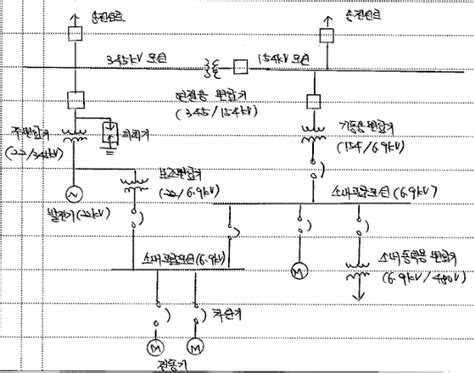 송전선로
송전선로
345kV 모선
154kV 모선
연결용 변압기
(345/154kV)
주변압기
(22/345kV)
피뢰기
기동용변압기
(154/6.9kV)
보조변압기
(22/6.9kV)
소내고압모선 (6.9kV)
발전기 (22kV)
소내고압모선 (6.9kV)
소내동력용 변압기
(6.9kV/480V)
차단기
M
M
M
전동기